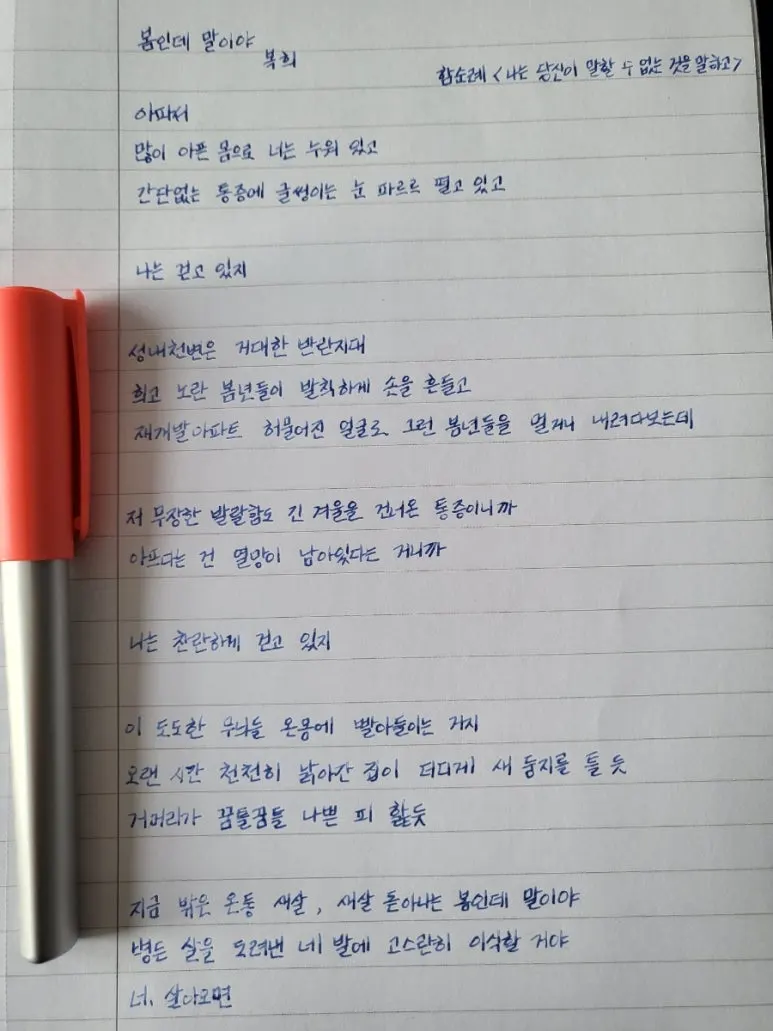 봄인데 말이야
복희
함순례 <나는 당신이 말할 수 없는 것을 말하고>
아파서
많이 아픈 몸으로 너는 누워 있고
간단없는 통증에 글썽이는 눈 파르르 떨고 있고
나는 걷고 있지
성내천변은 거대한 반란지대
희고 노란 봄년들이 발칙하게 손을 흔들고
재개발아파트 허물어진 얼굴로 그런 봄년들을 멀거니 내려다보는데
저 무장한 발랄함도 긴 겨울을 건너온 통증이니까
아프다는 건 열망이 남아있다는 거니까
나는 찬란하게 걷고 있지
이 도도한 무늬들 온몸에 빨아들이는 거지
오랜 시간 천천히 낡아간 집이 더디게 새 둥지를 틀 듯
거머리가 꿈틀꿈틀 나쁜 피 핥듯
지금 밖은 온통 새살, 새살 돋아나는 봄인데 말이야
병든 살을 도려낸 네 발에 고스란히 이식할 거야
너, 살아오면